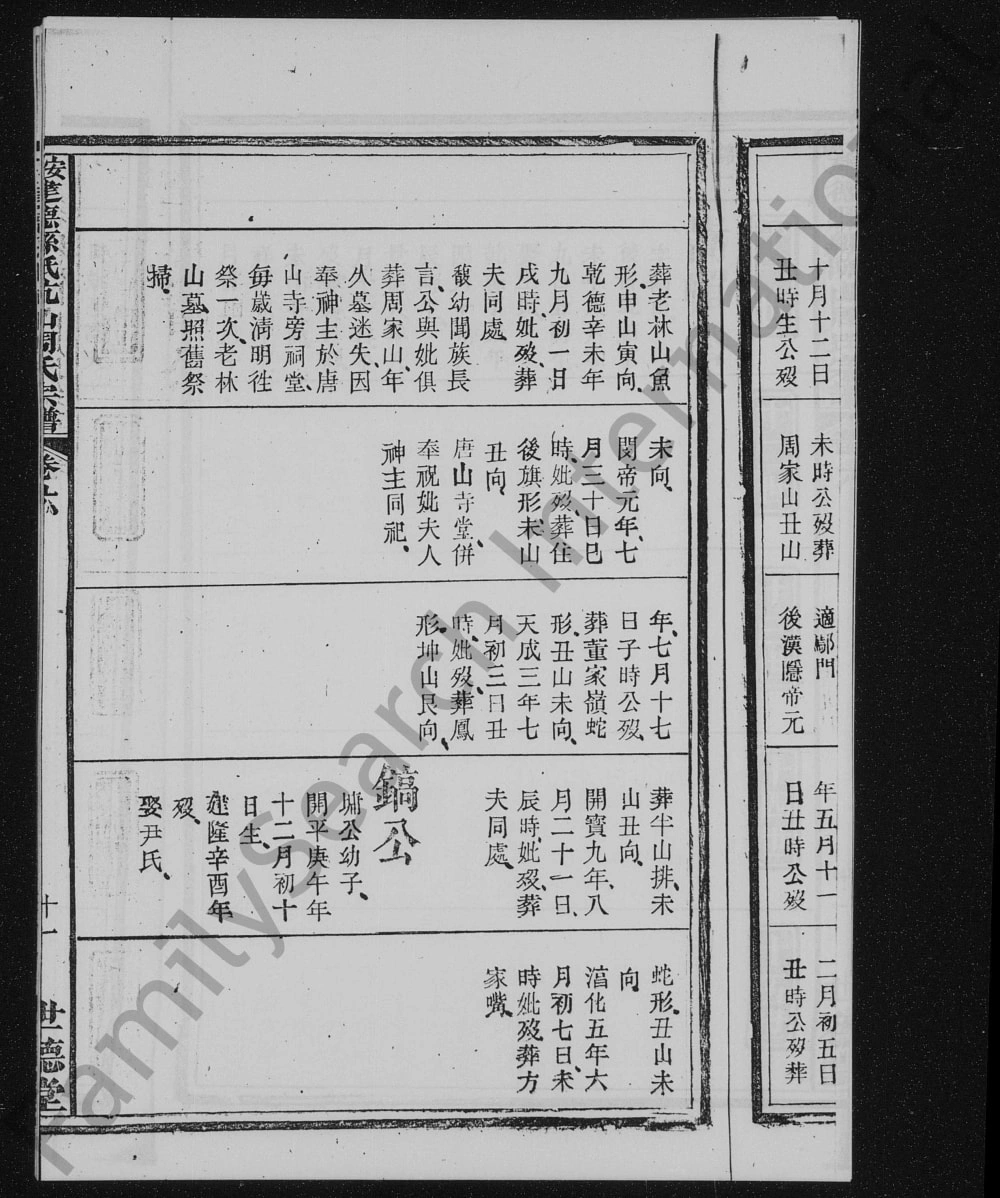 十月十二日
丑時生公歿
未時公歿葬
周家山丑山
適鄢門
後漢隱帝元
年五月十一
日丑時公歿
二月初五日
丑時公歿葬
葬老林山魚
形、申山寅向、
乾德辛未年
九月初一日
戌時、妣歿、葬
夫同處、
馥幼聞族長
言、公與妣俱
葬周家山、年
久墓迷失、因
奉神主於唐
山寺旁祠堂、
每歲清明徃
祭一次、老林
山墓、照舊祭
掃、
未向、
閔帝元年、七
月三十日巳
時、妣歿、葬住
後旗形未山
丑向、
唐山寺堂、併
奉祝妣夫人
神主同祀、
年、七月十七
日子時公歿、
葬董家嶺蛇
形、丑山未向、
天成三年七
月初三日丑
時、妣歿、葬鳳
形、坤山艮向、
葬半山排、未
山丑向、
開寶九年、八
月二十一日、
辰時、妣歿、葬
夫同處、
鎬公
墉公幼子、
開平庚午年
十二月初十
日生、
建隆辛酉年
歿、
娶尹氏、
蛇形、丑山未
向、
淳化五年六
月初七日、未
時妣歿、葬方
家嘴、
山周氏宗譜
卷六
十一
世德堂
FamilySearch International